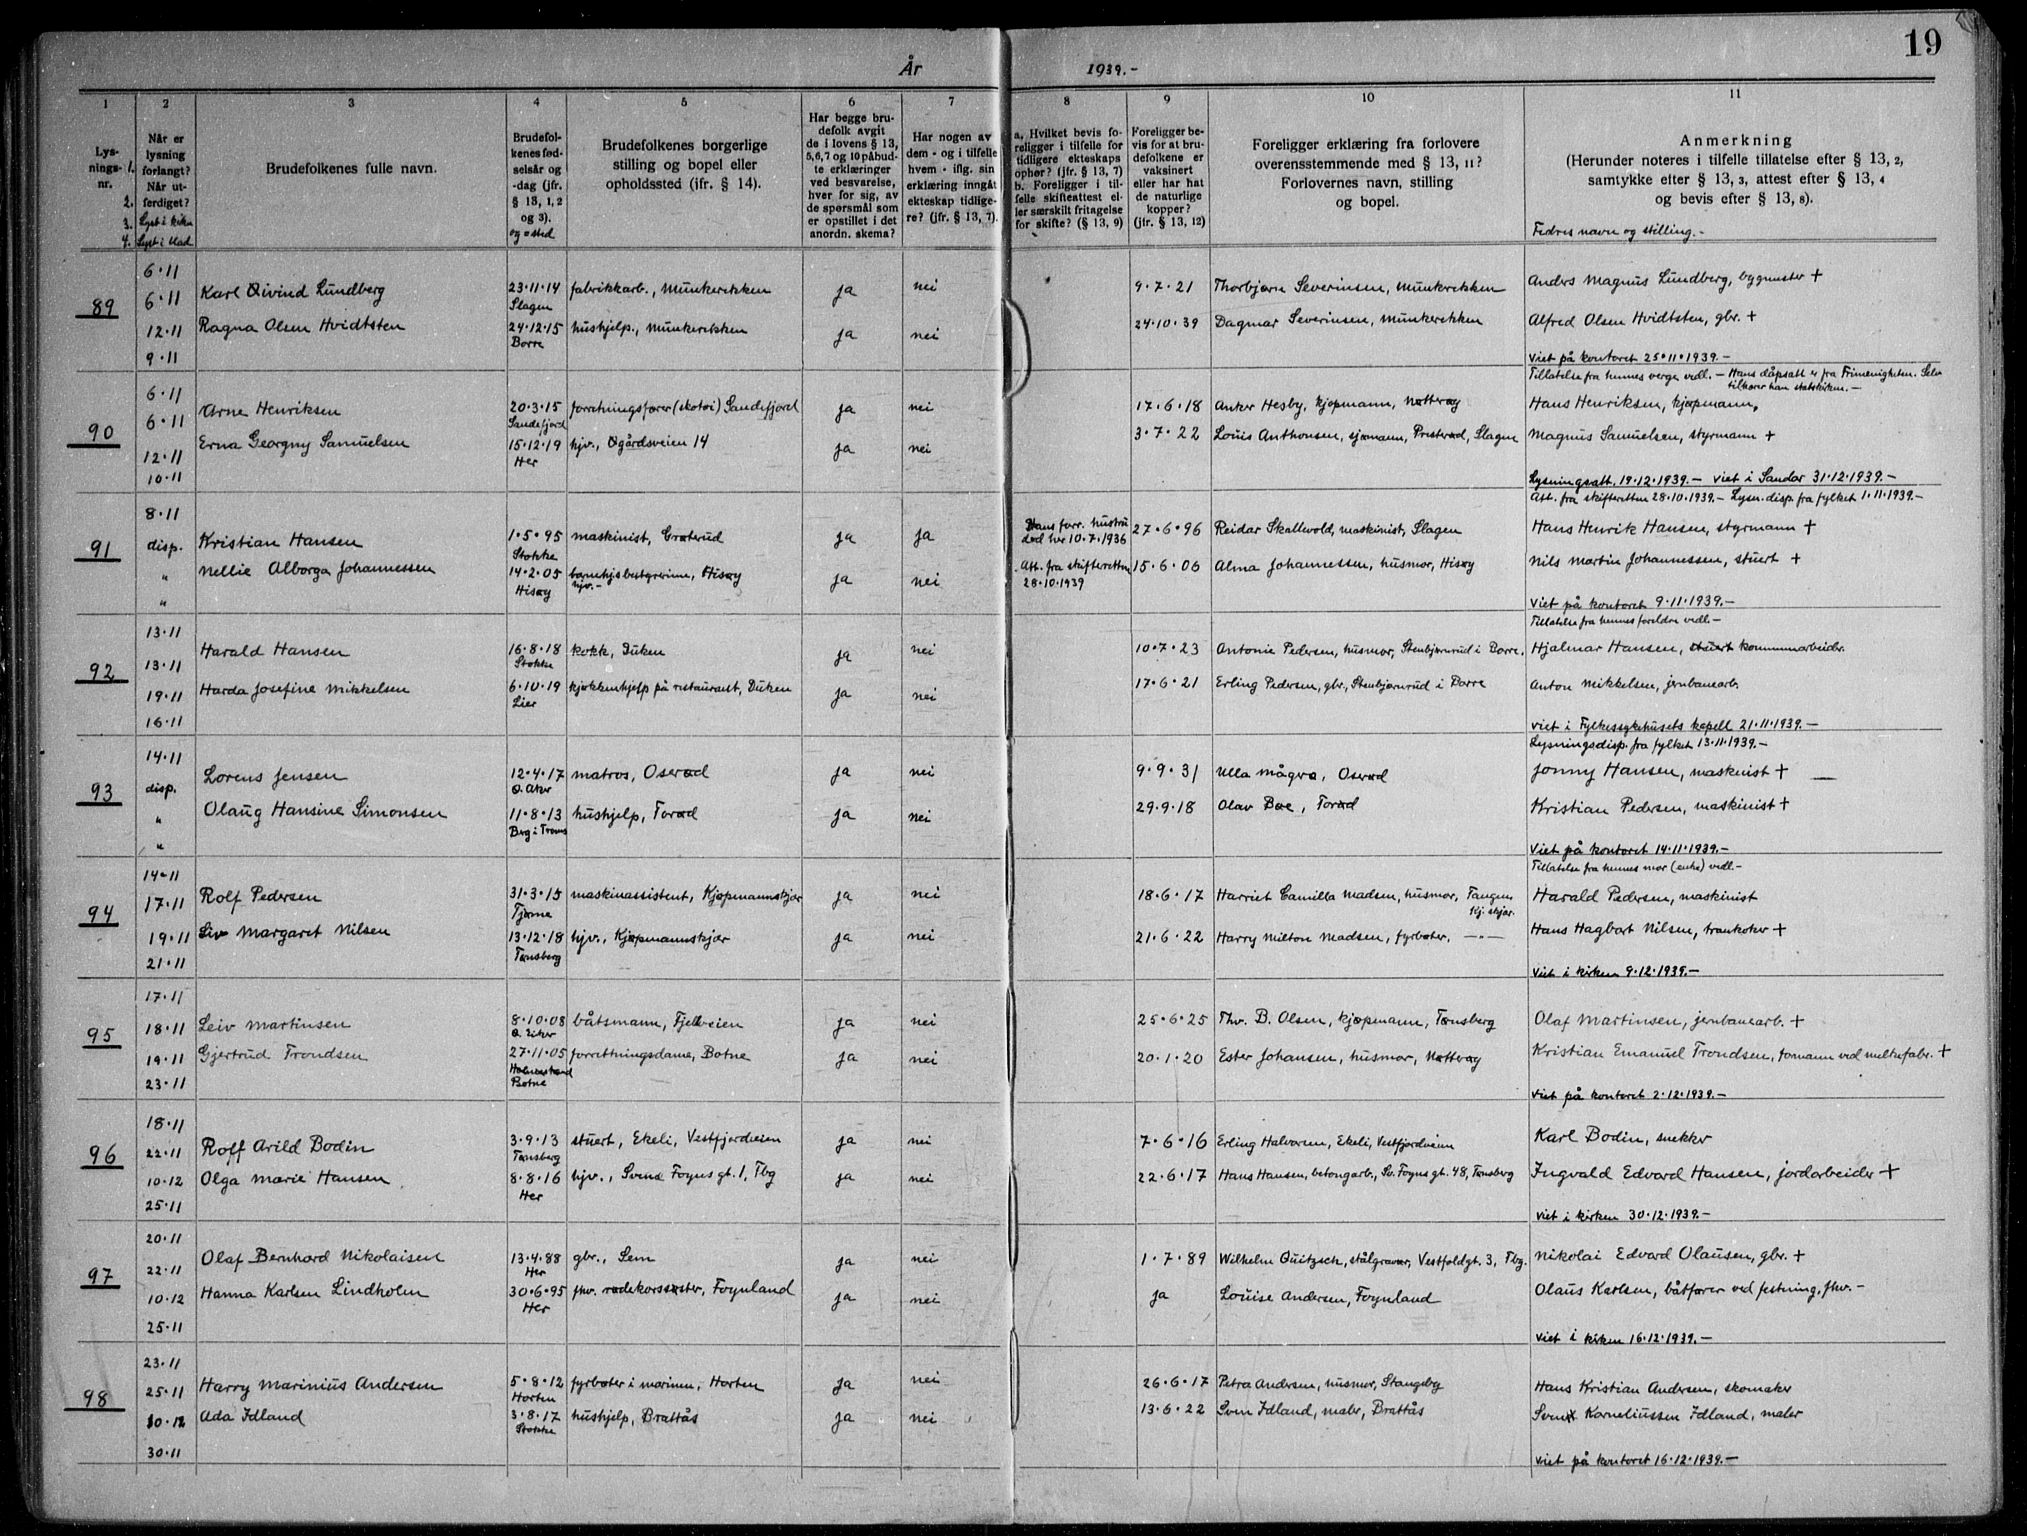 19
År 1939.-
1 2 3 4 5 6 7 8 9 10 11
Lys-
nings-
nr.
1.
2.
3.
4.
Når er
lysning
forlangt?
Når ut-
ferdiget?
Lyst i kirken
Lyst i blad
Brudefolkenes fulle navn.
Brudefol-
kenes fød-
selsår og
-dag (jfr.
§ 13, 1, 2
og 3).
og -sted
Brudefolkenes borgerlige
stilling og bopel eller
opholdssted (jfr. § 14).
Har begge bru-
defolk avgit
de i lovens § 13,
5, 6, 7 og 10 påbud-
te erklæringer
ved besvarelse,
hver for sig, av
de spørsmål som
er opstillet i det
anordn. skema?
Har nogen av
dem - og i tilfelle
hvem - iflg. sin
erklæring inngått
ekteskap tidlige-
re? (jfr. § 13, 7).
a. Hvilket bevis fo-
religger i tilfelle for
tidligere ekteskaps
ophør? (jfr. § 13, 7)
b. Foreligger i til-
felle skifteattest el-
ler særskilt fritagelse
for skifte? (§ 13, 9)
Foreligger be-
vis for at bru-
defolkene er
vaksinert
eller har hat
de naturlige
kopper?
(jfr. § 13, 12)
Foreligger erklæring fra forlovere
overensstemmende med § 13, 11?
Forlovernes navn, stilling
og bopel.
Anmerkning
(Herunder noteres i tilfelle tillatelse efter § 13, 2,
samtykke efter § 13, 3, attest efter § 13, 4
og bevis efter § 13, 8).
Fedres navn og stilling.-
89
6.11
6.11
12.11
9.11
Karl Øivind Lundberg 23.11.14 Slagen fabrikkarb., Munkerekken ja nei 9.7.21 Thorbjørn Severinsen, Munkerekken Anders Magnus Lundberg, bygmester +
Ragna Olsen Hvidtsten 24.12.15 Borre hushjelp., Munkerekken ja nei 24.10.39 Dagmar Severinsen, Munkerekken Alfred Olsen Hvidtsten, gbr. +
Viet på kontoret 25.11.1939.-
90
6.11
6.11
12.11
10.11
Tillatelse fra hennes verge vedl. - Hans dåpsatt. er fra Frimenigheten. Selv
tilhører han statskirken.-
Arne Henriksen 20.3.15 Sandefjord forretningsfører (skotøi) Sandefjord ja nei 17.6.18 Anker Hesby, kjøpmann, Nøtterøy Hans Henriksen, kjøpmann,
Erna Georgny Samuelsen 15.12.19 Her hjv., Øgårdsveien 14 ja nei 3.7.22 Louis Anthonsen, sjømann, Presterød, Slagen Magnus Samuelsen, styrmann +
Lysningsatt. 19.12.1939.- Viet i Sandar 31.12.1939.-
91
8.11
disp.
"
"
Att. fra skifteretten 28.10.1939.- Lysn.disp. fra fylket 1.11.1939.-
Kristian Hansen 1.5.95 Stokke maskinist, Grøterud ja ja Hans forr. hustru død her 10.7.1936 27.6.96 Reidar Skallevold, maskinist, Slagen Hans Henrik Hansen, styrmann +
Nellie Alborga Johannessen 14.2.05 Hisøy barnehjsbestyrerinne, Hisøy hjv.- ja nei Att. fra skifteretten 28.10.1939 15.6.06 Alma Johannessen, husmor, Hisøy Nils Martin Johannessen, stuert +
Viet på kontoret 9.11.1939.-
92
13.11
13.11
19.11
16.11
Tillatelse fra hennes foreldre vedl.-
Harald Hansen 16.8.18 Stokke kokk, Duken ja nei 10.7.23 Antonie Pedersen, husmor, Stenbjørnrud i Borre. Hjalmar Hansen, stuert kommunearbeider.
Harda Josefine Mikkelsen 6.10.19 Lier kjøkkenhjelp på restaurant, Duken ja nei 17.6.21 Erling Pedersen, gbr., Stenbjørnrud i Borre Anton Mikkelsen, jernbanearb.
Viet i Fylkessykehusets kapell 21.11.1939.-
93
14.11
disp.
"
"
Lysningsdisp. fra fylket 13.11.1939.-
Lorens Jensen 12.4.17 Ø. Aker matros, Oserød ja nei 9.9.31 Ulla Mågrø, Oserød Jonny Hansen, maskinist +
Olaug Hansine Simonsen 11.8.13 Berg i Troms hushjelp, Torød ja nei 29.9.18 Olav Bøe, Torød Kristian Pedersen, maskinist +
Viet på kontoret 14.11.1939.-
94
14.11
17.11
19.11
21.11
Tillatelse fra hennes mor (enke) vedl.-
Rolf Pedersen 31.3.15 Tjøme maskinassistent, Kjøpmannskjær ja nei 18.6.17 Harriet Camilla Madsen, husmor, Tangen Kj.skjær. Harald Pedersen, maskinist
Liv Margaret Nilsen 13.12.18 Tønsberg hjv., Kjøpmannskjær ja nei 21.6.22 Harry Milton Madsen, fyrbøter, -"- Hans Hagbart Nilsen, trankoker +
Viet i kirken 9.12.1939.-
95
17.11
18.11
19.11
23.11
Leiv Martinsen 8.10.08 Ø. Eiker båtsmann, Fjellveien ja nei 25.6.25 Thv. B. Olsen, kjøpmann, Tønsberg Olaf Martinsen, jernbanearb. +
Gjertrud Trondsen 27.11.05 Holmestrand Botne forretningsdame, Botne ja nei 20.1.20 Ester Johansen, husmor, Nøtterøy Kristian Emanuel Trondsen, formann ved melkefabr. +
Viet på kontoret 2.12.1939.-
96
18.11
22.11
10.12
25.11
Rolf Arild Bodin 3.9.13 Tønsberg stuert, Ekeli, Vestfjordveien ja nei 7.6.16 Erling Halvorsen, Ekeli, Vestfjordveien Karl Bodin, snekker
Olga Marie Hansen 8.8.16 Her hjv., Svend Foyns gt. 1, Tbg ja nei 22.6.17 Hans Hansen, betongarb., Sv. Foyns gt. 48, Tønsberg Ingvald Edvard Hansen, jordarbeider +
Viet i kirken 30.12.1939.-
97
20.11
22.11
10.12
25.11
Olaf Bernhard Nikolaisen 13.4.88 Her gbr., Sem ja nei 1.7.89 Wilhelm Quitzsch, stålgravør, Vestfoldgt. 3, Tbg. Nikolai Edvard Olausen, gbr. +
Hanna Karlsen Lindholm 30.6.95 Her fhv. rødekorssøster, Foynland ja nei ja Louise Andersen, Foynland Olaus Karlsen, båtfører ved festning, fhv.-
Viet i kirken 16.12.1939.-
98
23.11
25.11
10.12
30.11
Harry Marinius Andersen 5.8.12 Horten fyrbøter i marinen, Horten ja nei 26.6.17 Petra Andersen, husmor, Stangeby Hans Kristian Andersen, skomaker
Ada Idland 3.8.17 Stokke hushjelp, Brattås ja nei 13.6.22 Sven Idland, maler, Brattås Sven Korneliussen Idland, maler
Viet på kontoret 16.12.1939.-